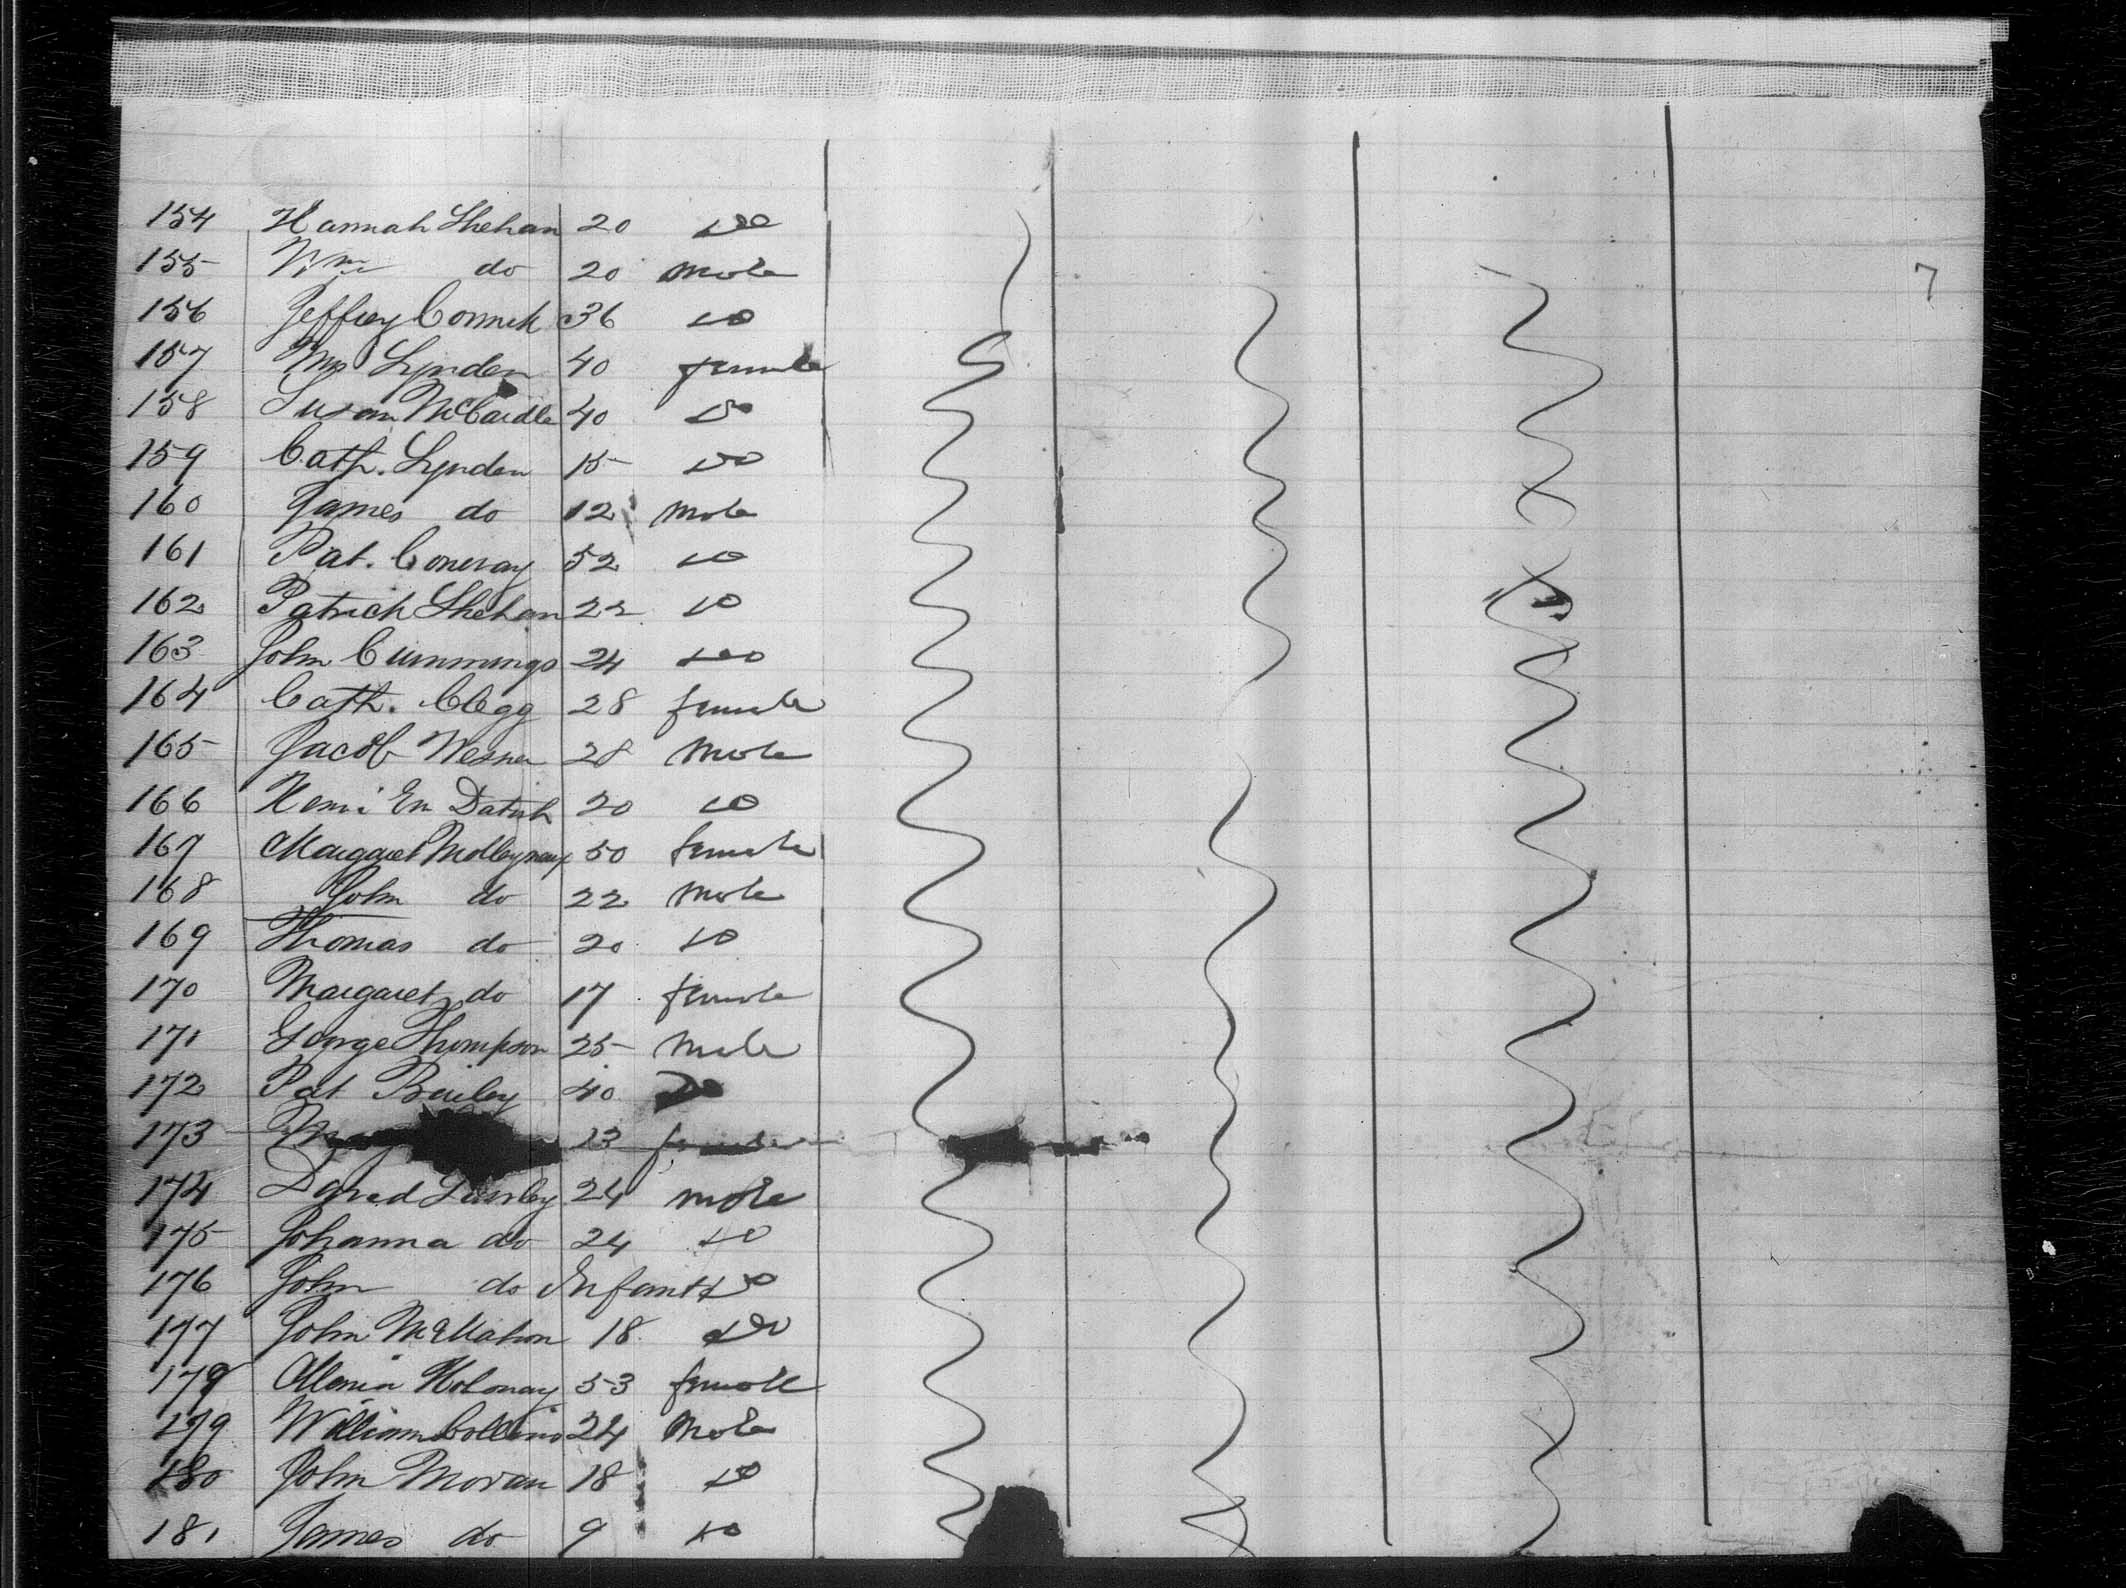 7
154 Hannah Shehan 20 do
155 Wm do 20 male
156 Jeffrey 36 do
157 Mrs Lynden 40 female
158 Susan McCardle 40 do
159 Cath. Lynden 15 do
160 James do 12 male
161 Pat. Conway 52 do
162 Patrick Shehan 22 do
163 John Cummings 24 do
164 Cath. Clegg 28 female
165 Jacob Wesner 28 male
166 20 do
167 Margaret 50 female
168 John do 22 male
169 Thomas do 20 do
170 Margaret do 17 female
171 George Thompson 25 male
172 Pat Bailey 40 do
173 23 female
174 David 24 male
175 Johanna do 24 do
176 John do Infant do
177 John McMahon 18 do
178 Maria Holonay 53 female
179 William Collins 24 male
180 John Moran 18 do
181 James do 9 do